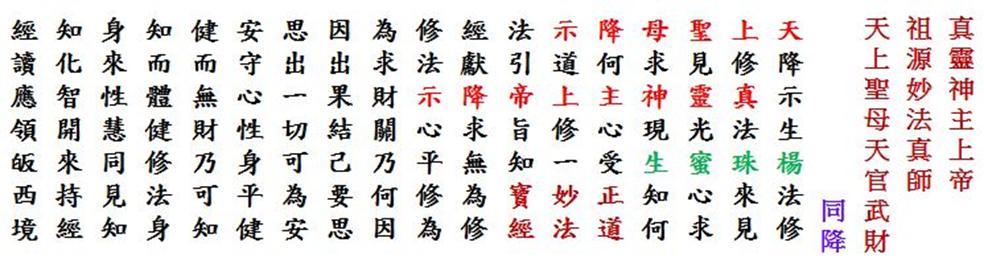 真靈神主上帝
祖源妙法真師
天上聖母天官武財
同降
天降示生楊法修
上修真法珠來見
聖見靈光蜜心求
母求神現生知何
降何主心受正道
示道上修一妙法
法引帝旨知寶經
經獻降求無為修
修法示心平修為
為求財關乃何因
因出果結己要思
思出一切可為安
安守心性身平健
健而無財乃可知
知而體健修法身
身來性慧同見知
知化智開來持經
經讀應領皈西境